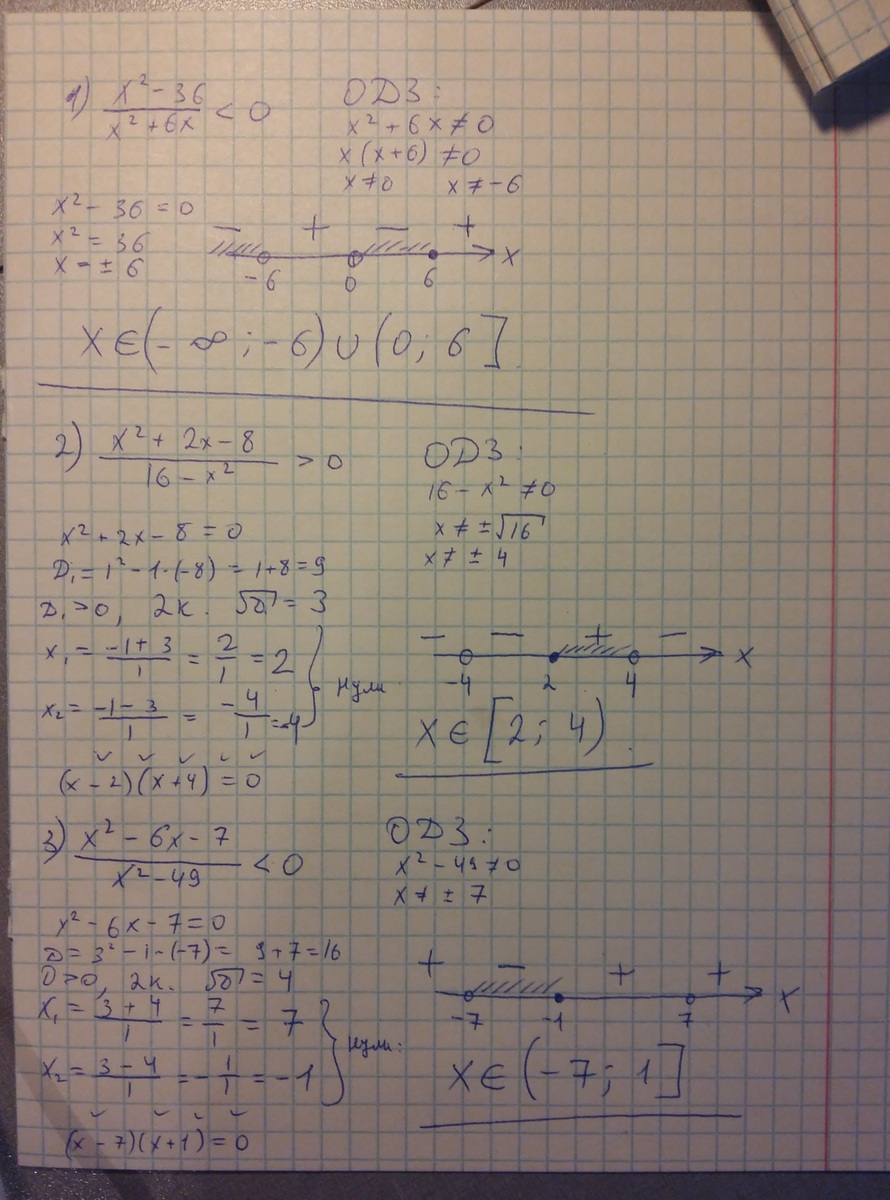 1) (x² - 36)/(x² + 6x) < 0
ОДЗ:
x² + 6x ≠ 0
x(x+6) ≠ 0
x ≠ 0 x ≠ -6
x² - 36 = 0
x² = 36
x = ± 6
- + - +
-6 0 6 x
x ∈ (-∞; -6) ∪ (0; 6]
2) (x² + 2x - 8)/(16 - x²) > 0
ОДЗ:
16 - x² ≠ 0
x ≠ ±√16
x ≠ ± 4
x² + 2x - 8 = 0
D₁ = 1² - 1·(-8) = 1+8 = 9
D₁ > 0, 2к. √D = 3
x₁ = (-1+3)/1 = 2/1 = 2
x₂ = (-1-3)/1 = -4/1 = -4
нули
(x - 2)(x+4) = 0
- - + -
-4 2 4 x
x ∈ [2; 4)
3) (x² - 6x - 7)/(x² - 49) < 0
ОДЗ:
x² - 49 ≠ 0
x ≠ ± 7
x² - 6x - 7 = 0
D = 3² - 1·(-7) = 9+7 = 16
D > 0, 2к. √D = 4
x₁ = (3+4)/1 = 7/1 = 7
x₂ = (3-4)/1 = -1/1 = -1
нули:
(x - 7)(x+1) = 0
+ - + +
-7 -1 7 x
x ∈ (-7; 1]